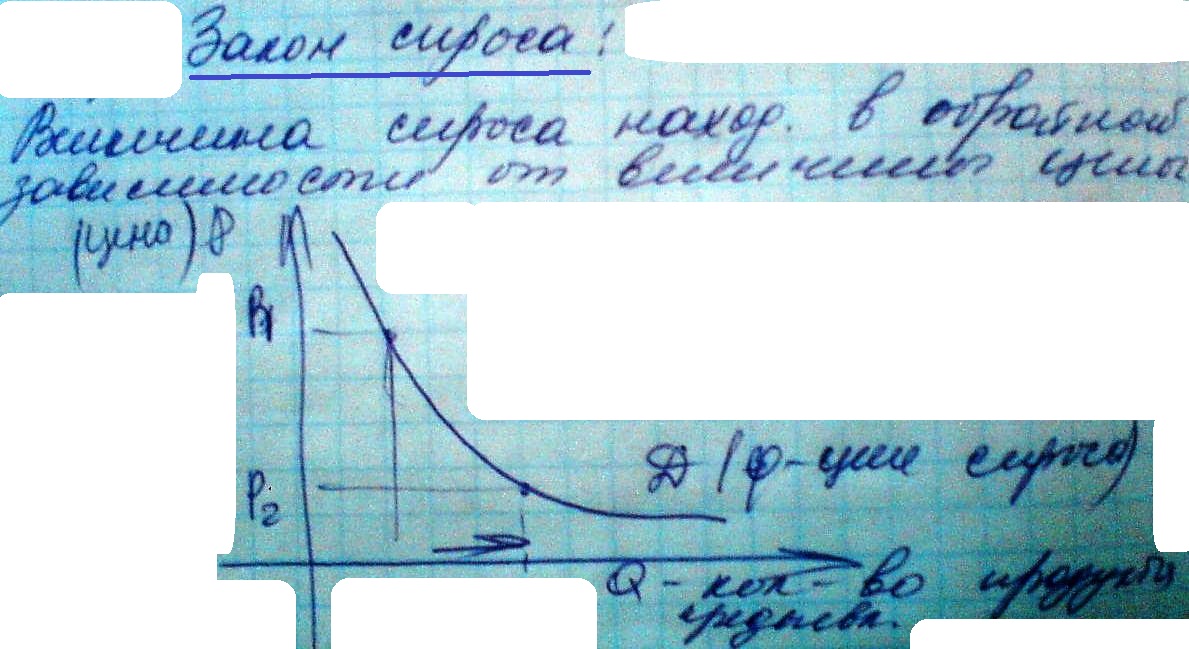 Закон спроса:
Величина спроса наход. в обратной
зависимости от величины цены
(цена) P
P1
P2
D (ф-ция спроса)
Q - кол-во продукта